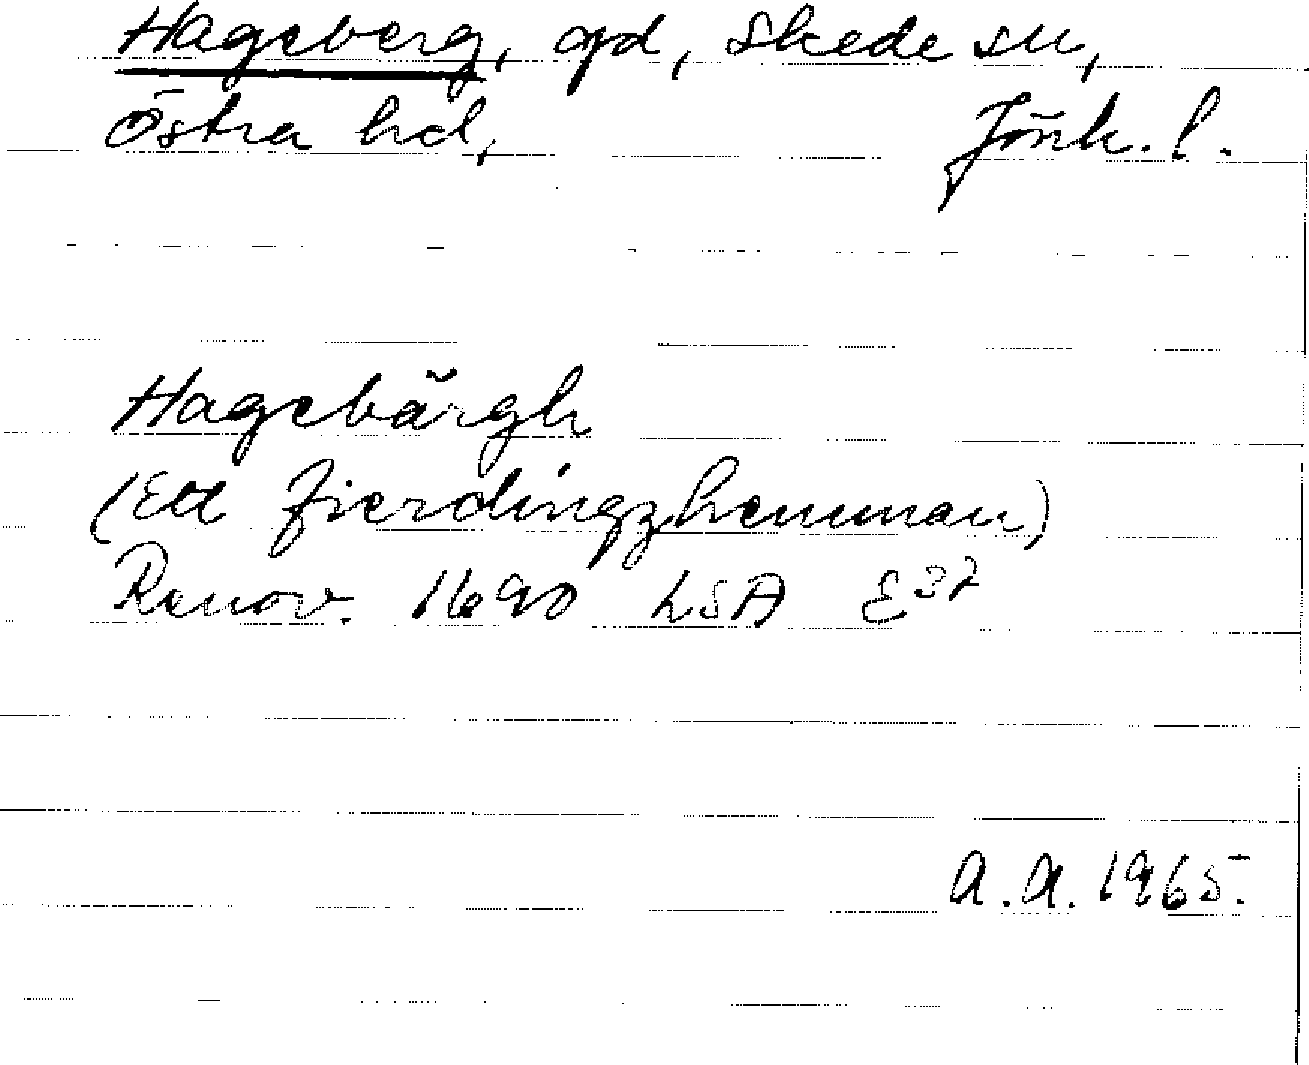 Hageberg, gd, Skede sn,
Östra hd, Jönk. l.
Hagebärgh
(Ett fierdingzhemman)
Renov. 1690 LSA E37
A.A. 1965.